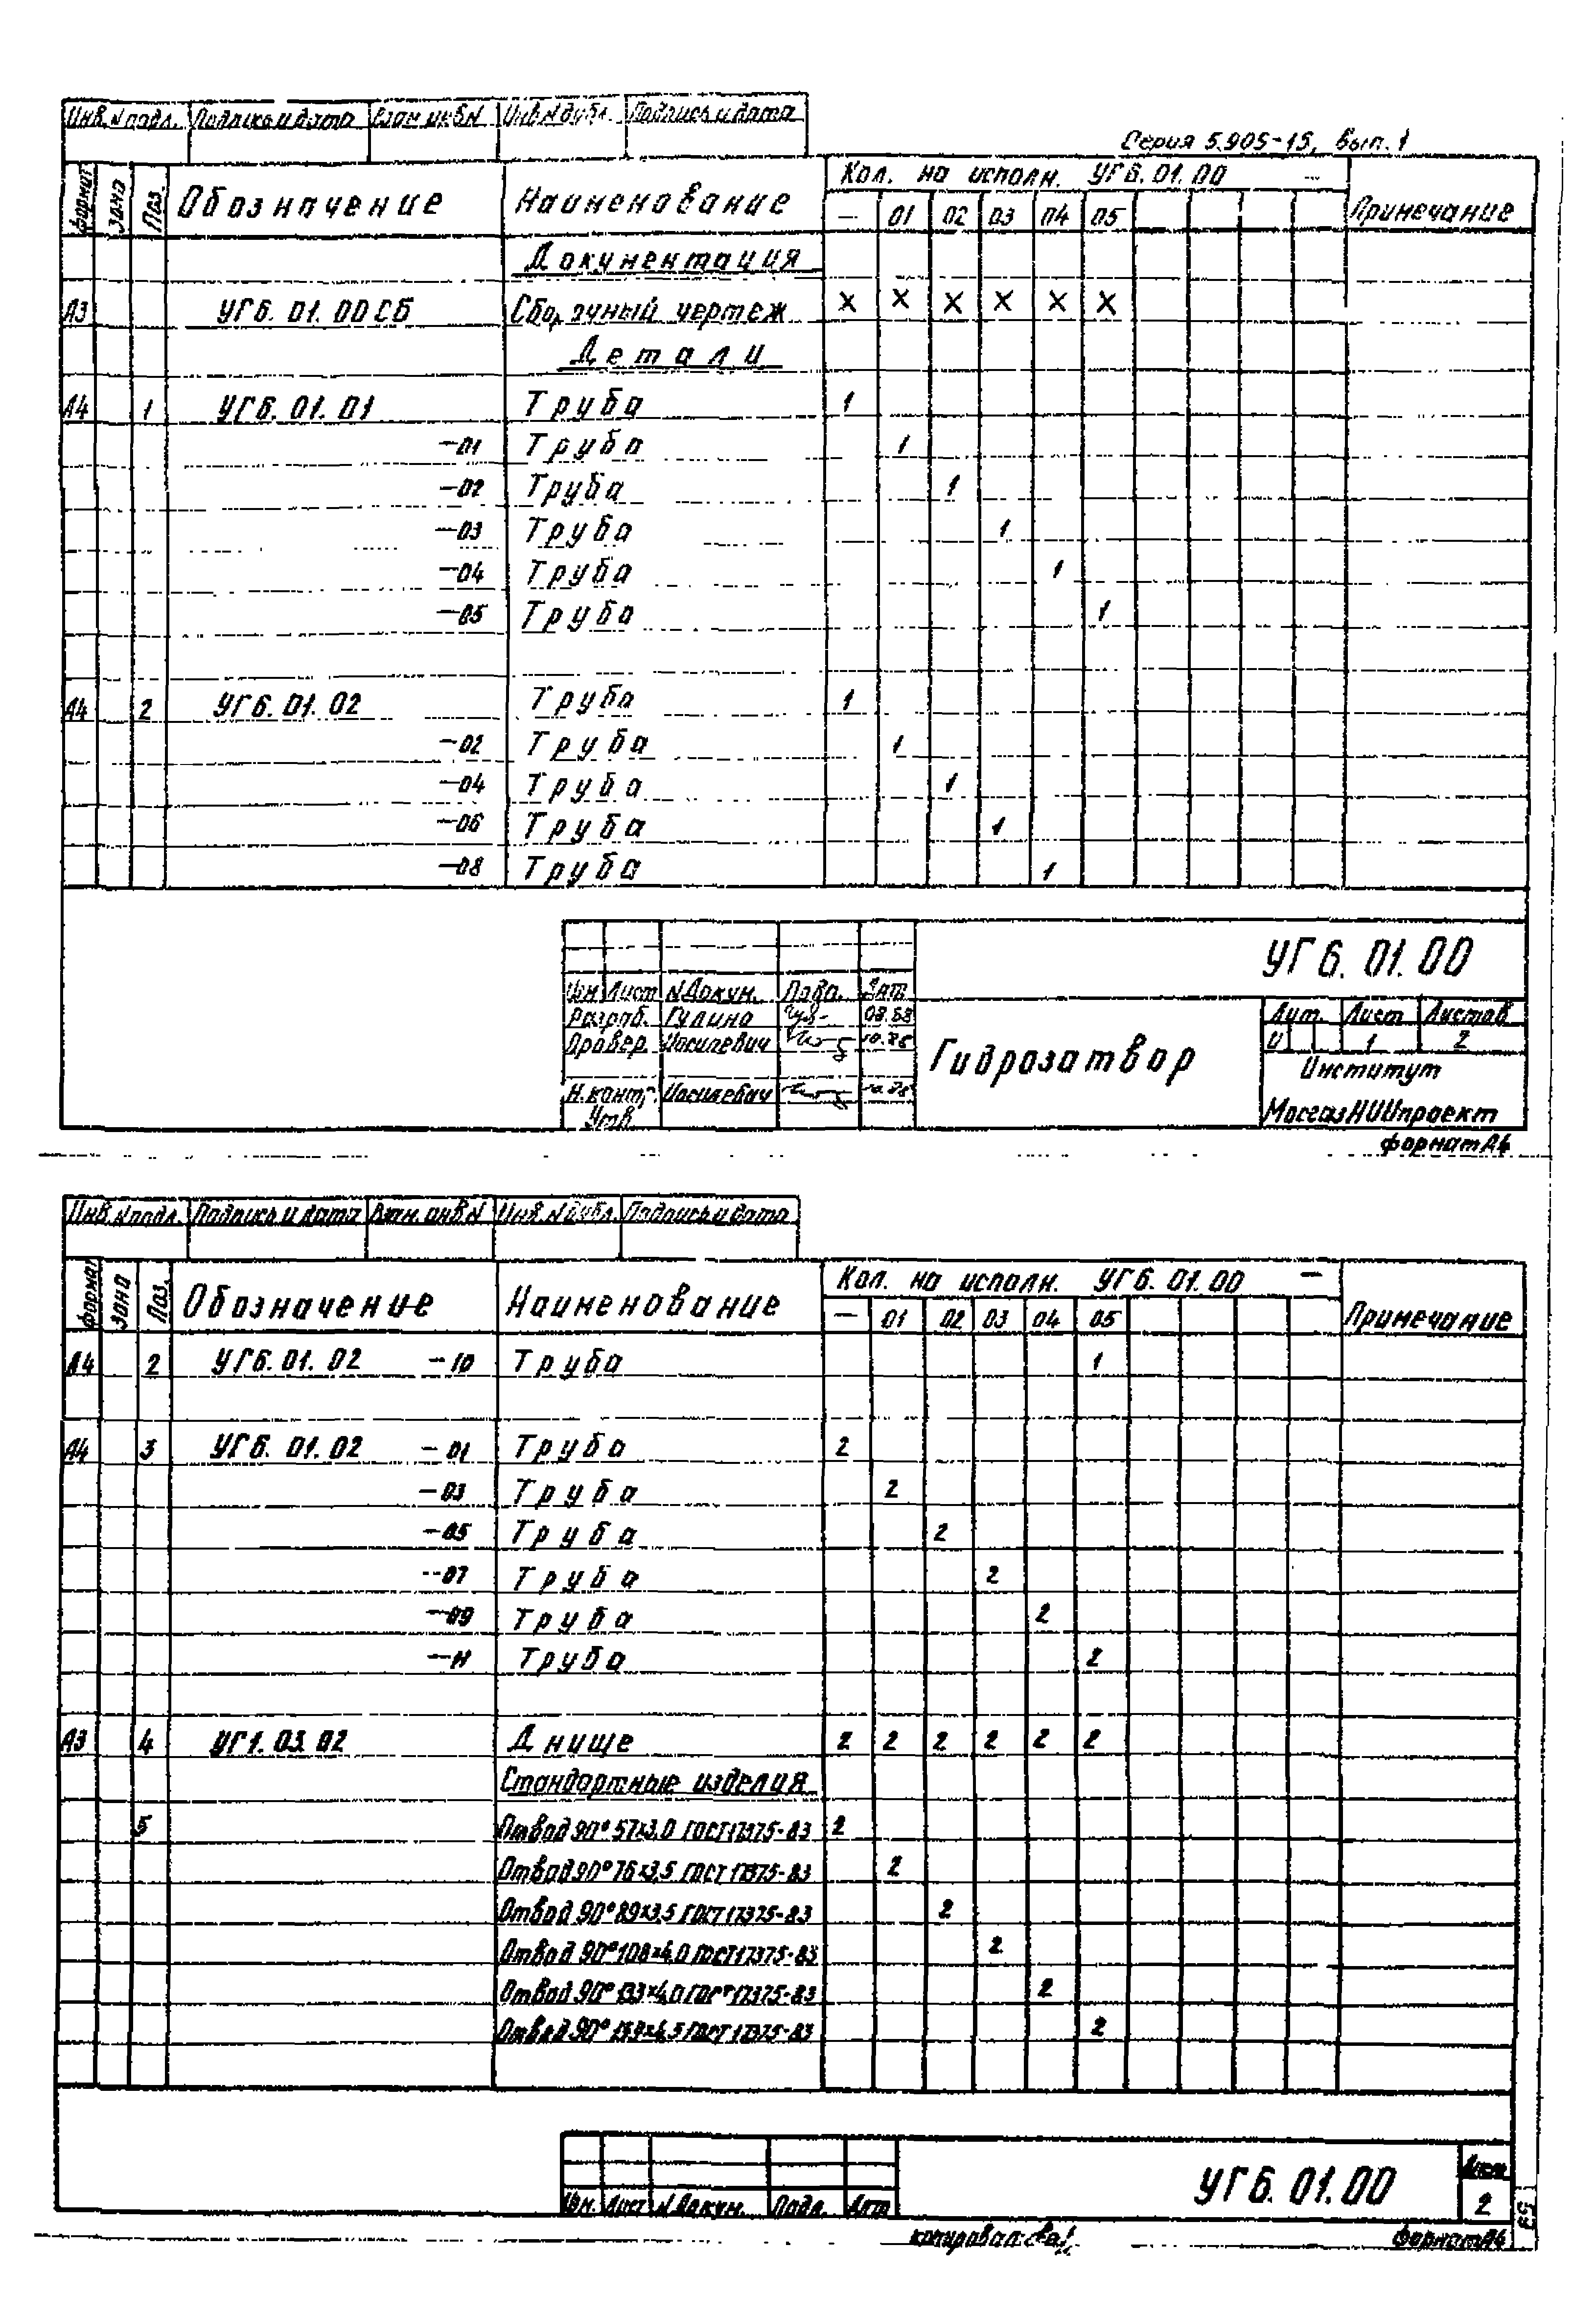 Инв.№подл. Подпись и дата Взам.инв№ Инв№дубл. Подпись и дата
Серия 5.905-15, вып. 1
формат зона Поз. Обозначение Наименование Кол. на исполн. УГ6.01.00 — Примечание
— 01 02 03 04 05
Документация
А3 УГ6. 01. 00 СБ Сборочный чертеж X X X X X X
Детали
А4 1 УГ6. 01. 01 Труба 1
—01 Труба 1
—02 Труба 1
—03 Труба 1
—04 Труба 1
—05 Труба 1
А4 2 УГ6. 01. 02 Труба 1
—02 Труба 1
—04 Труба 1
—06 Труба 1
—08 Труба 1
УГ6. 01. 00
Изм Лист №Докум. Подп. Дат
Разраб. Гулина
Провер. Иосилевич
Н.контр. Иосилевич
Утв.
Гидрозатвор
Лит. Лист Листов
И 1 2
Институт
МосгазНИИпроект
формат А4
Инв.№подл. Подпись и дата Взам. инв№ Инв.№дубл. Подпись и дата
формат зона Поз. Обозначение Наименование Кол. на исполн. УГ6. 01. 00 — Примечание
— 01 02 03 04 05
А4 2 УГ6. 01. 02 —10 Труба 1
А4 3 УГ6. 01. 02 —01 Труба 2
—03 Труба 2
—05 Труба 2
—07 Труба 2
—09 Труба 2
—11 Труба 2
А3 4 УГ1. 03. 02 Днище 2 2 2 2 2 2
Стандартные изделия
5 Отвод 90° 57×3,0 ГОСТ17375-83 2
Отвод 90° 76×3,5 ГОСТ 17375-83 2
Отвод 90° 89×3,5 ГОСТ17375-83 2
Отвод 90° 108×4,0 ГОСТ17375-83 2
Отвод 90° 133×4,0 ГОСТ17375-83 2
Отвод 90° 159×4,5 ГОСТ 17375-83 2
Изм. Лист №Докум. Подп. Дат
УГ6. 01. 00
Лист
2
копировал:
формат А4